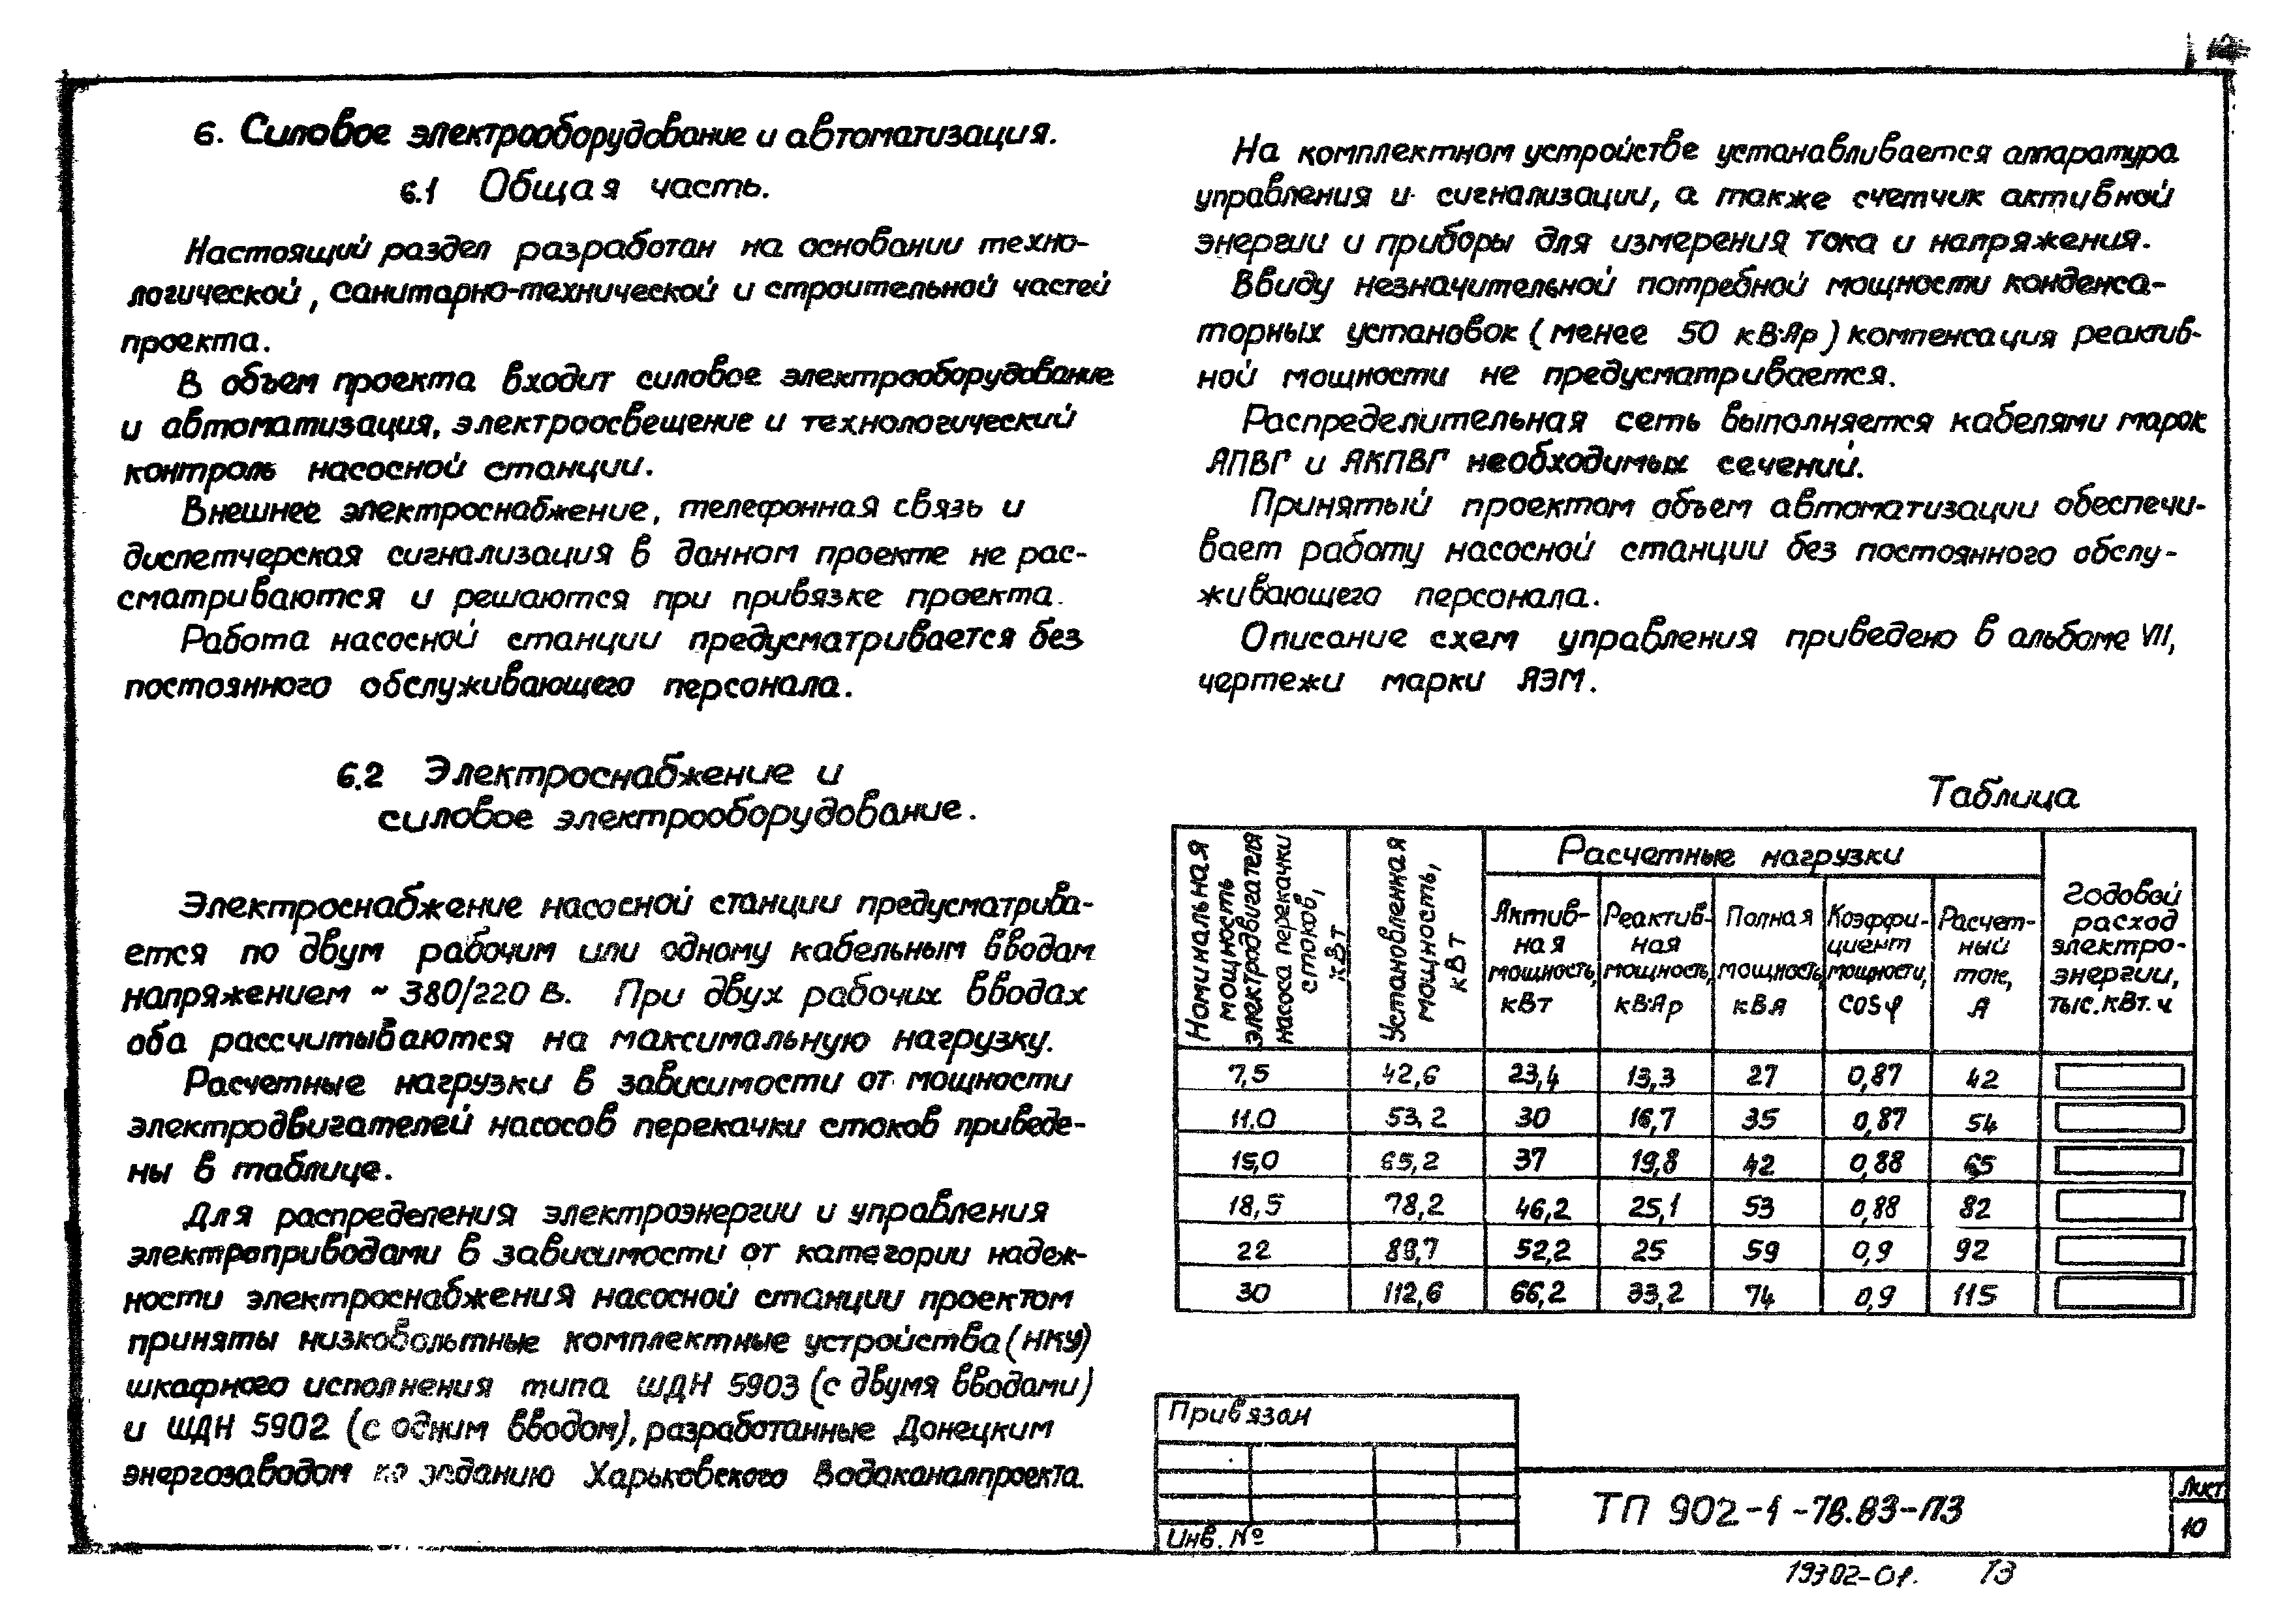 6. Силовое электрооборудование и автоматизация.
6.1 Общая часть.
Настоящий раздел разработан на основании техно-
логической, санитарно-технической и строительной частей
проекта.
В объем проекта входит силовое электрооборудование
и автоматизация, электроосвещение и технологический
контроль насосной станции.
Внешнее электроснабжение, телефонная связь и
диспетчерская сигнализация в данном проекте не рас-
сматриваются и решаются при привязке проекта.
Работа насосной станции предусматривается без
постоянного обслуживающего персонала.
6.2 Электроснабжение и
силовое электрооборудование.
Электроснабжение насосной станции предусматрива-
ется по двум рабочим или одному кабельным вводам
напряжением ~ 380/220 в. При двух рабочих вводах
оба рассчитываются на максимальную нагрузку.
Расчетные нагрузки в зависимости от мощности
электродвигателей насосов перекачки стоков приведе-
ны в таблице.
Для распределения электроэнергии и управления
электроприводами в зависимости от категории надеж-
ности электроснабжения насосной станции проектом
приняты низковольтные комплектные устройства (НКУ)
шкафного исполнения типа ШДН 5903 (с двумя вводами)
и ШДН 5902 (с одним вводом), разработанные Донецким
энергозаводом по заданию Харьковского Водоканалпроекта.
На комплектном устройстве устанавливается аппаратура
управления и сигнализации, а также счетчик активной
энергии и приборы для измерения тока и напряжения.
Ввиду незначительной потребной мощности конденса-
торных установок (менее 50 кВ·Ар) компенсация реактив-
ной мощности не предусматривается.
Распределительная сеть выполняется кабелями марок
АПВГ и АКПВГ необходимых сечений.
Принятый проектом объем автоматизации обеспечи-
вает работу насосной станции без постоянного обслу-
живающего персонала.
Описание схем управления приведено в альбоме VII,
чертежи марки АЭМ.
Таблица
Номинальная мощность электродвигателя насоса перекачки стоков, кВт
Установленная мощность, кВт
Расчетные нагрузки
Актив-
ная
мощность,
кВт
Реактив-
ная
мощность,
кВ·Ар
Полная
мощность,
кВА
Коэффи-
циент
мощности,
cosφ
Расчет-
ный
ток,
А
Годовой
расход
электро-
энергии,
тыс.кВт.ч
7,5 42,6 23,4 13,3 27 0,87 42
11.0 53,2 30 16,7 35 0,87 54
15,0 65,2 37 19,8 42 0,88 65
18,5 78,2 46,2 25,1 53 0,88 82
22 52,2 25 59 0,9 92
30 112,6 66,2 33,2 74 0,9 115
Привязан
Инв. №
ТП 902-1-78.83-ПЗ
Лист
10
19302-01. 13